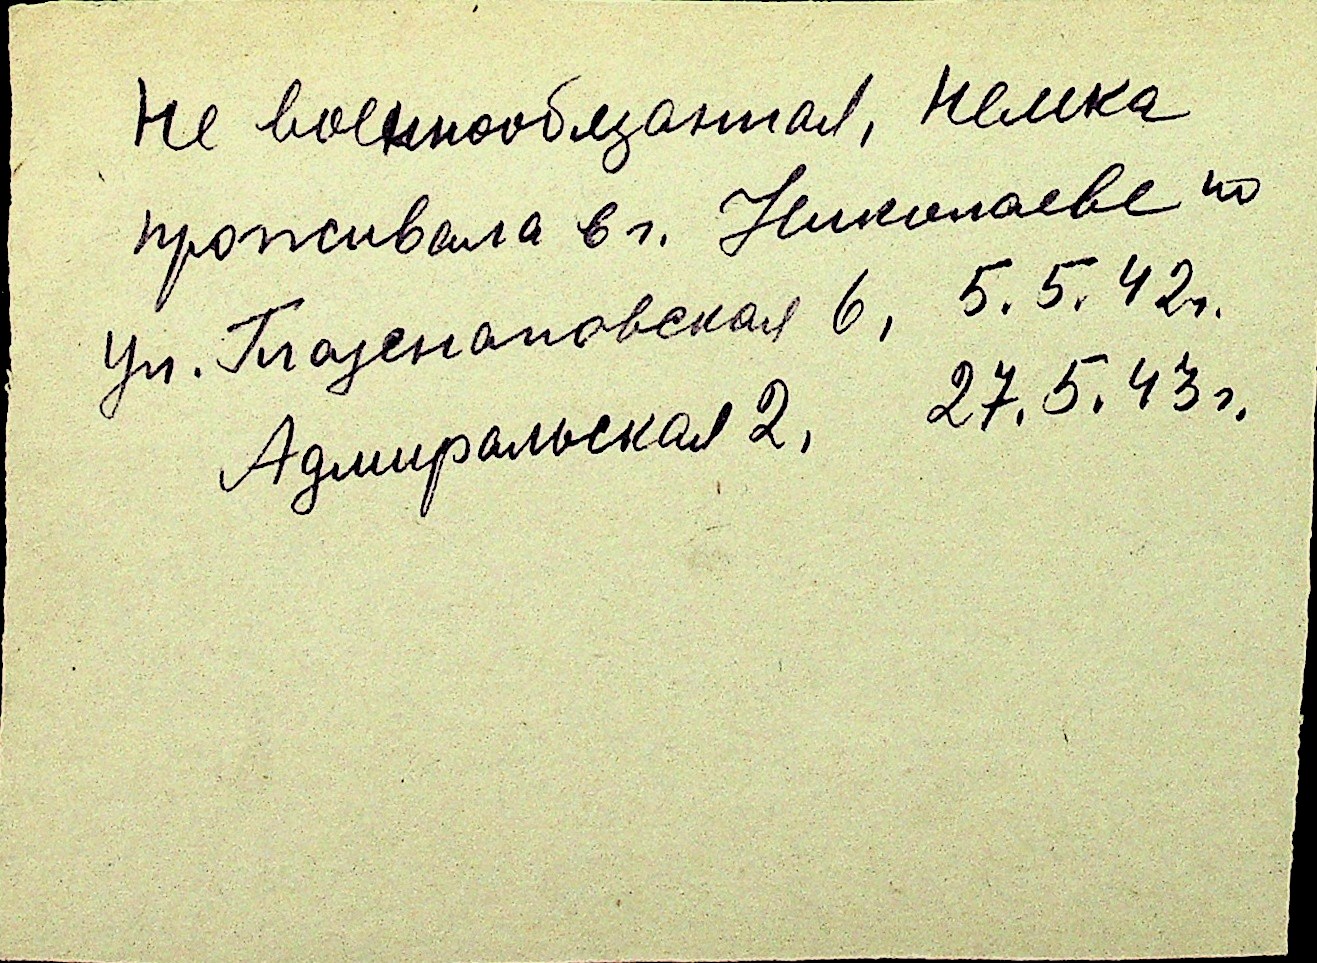 Не военнообязанная, немка
проживала в г. Николаеве по
ул. Глазенаповская 6, 5.5.42г.
Адмиральская 2, 27.5.43г.